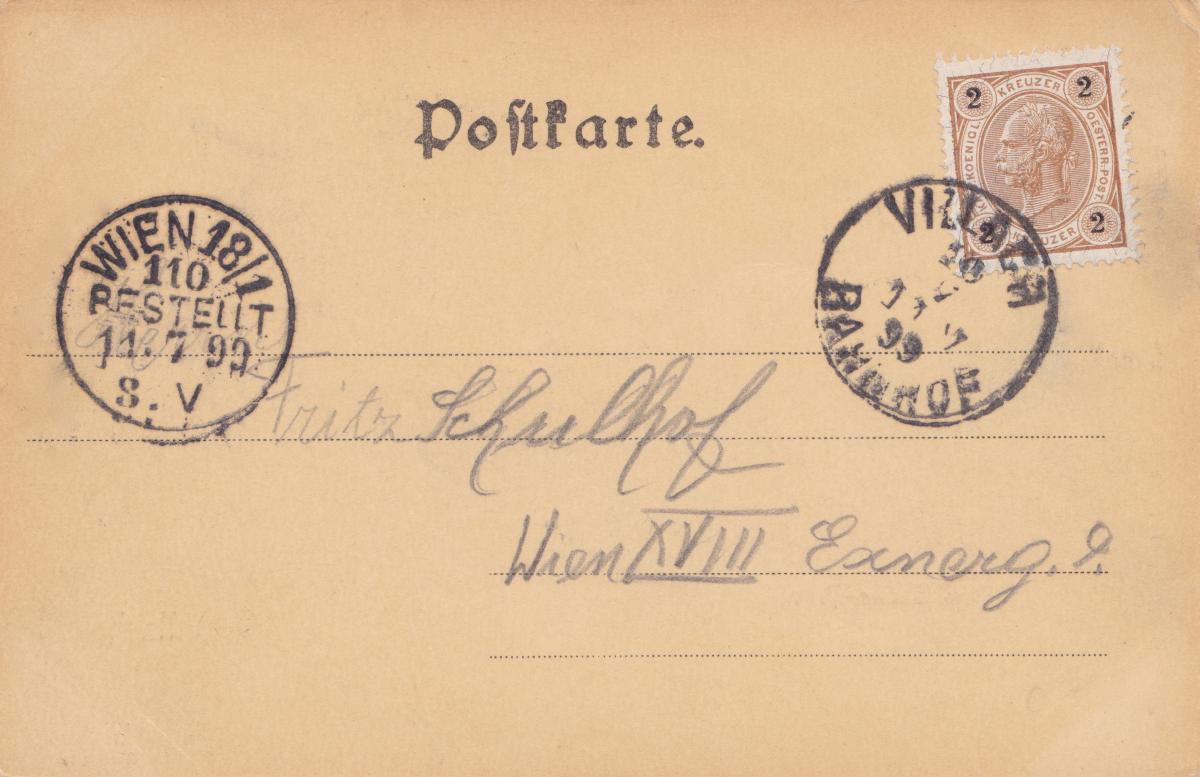 Postkarte.
2 KREUZER 2
K.K. KOENIGL. OESTERR. POST.
2 KREUZER 2
VILLACH
99
BAHNHOF
WIEN 18/1
110
BESTELLT
11. 7 99
8. V
Fritz Schulhof
Wien XVIII Exnerg. 9.